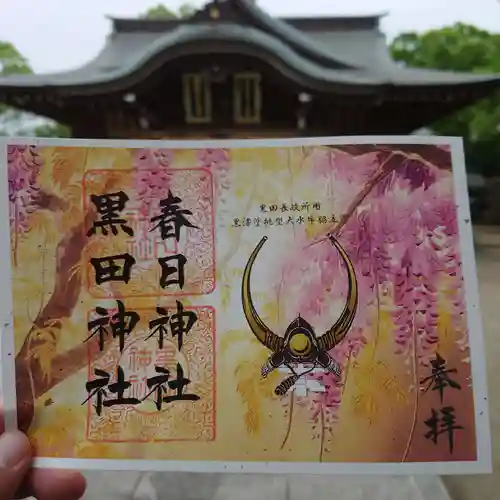 春日神社
黒田神社
黒田長政所用
黒漆塗桃型大水牛脇立
奉拝